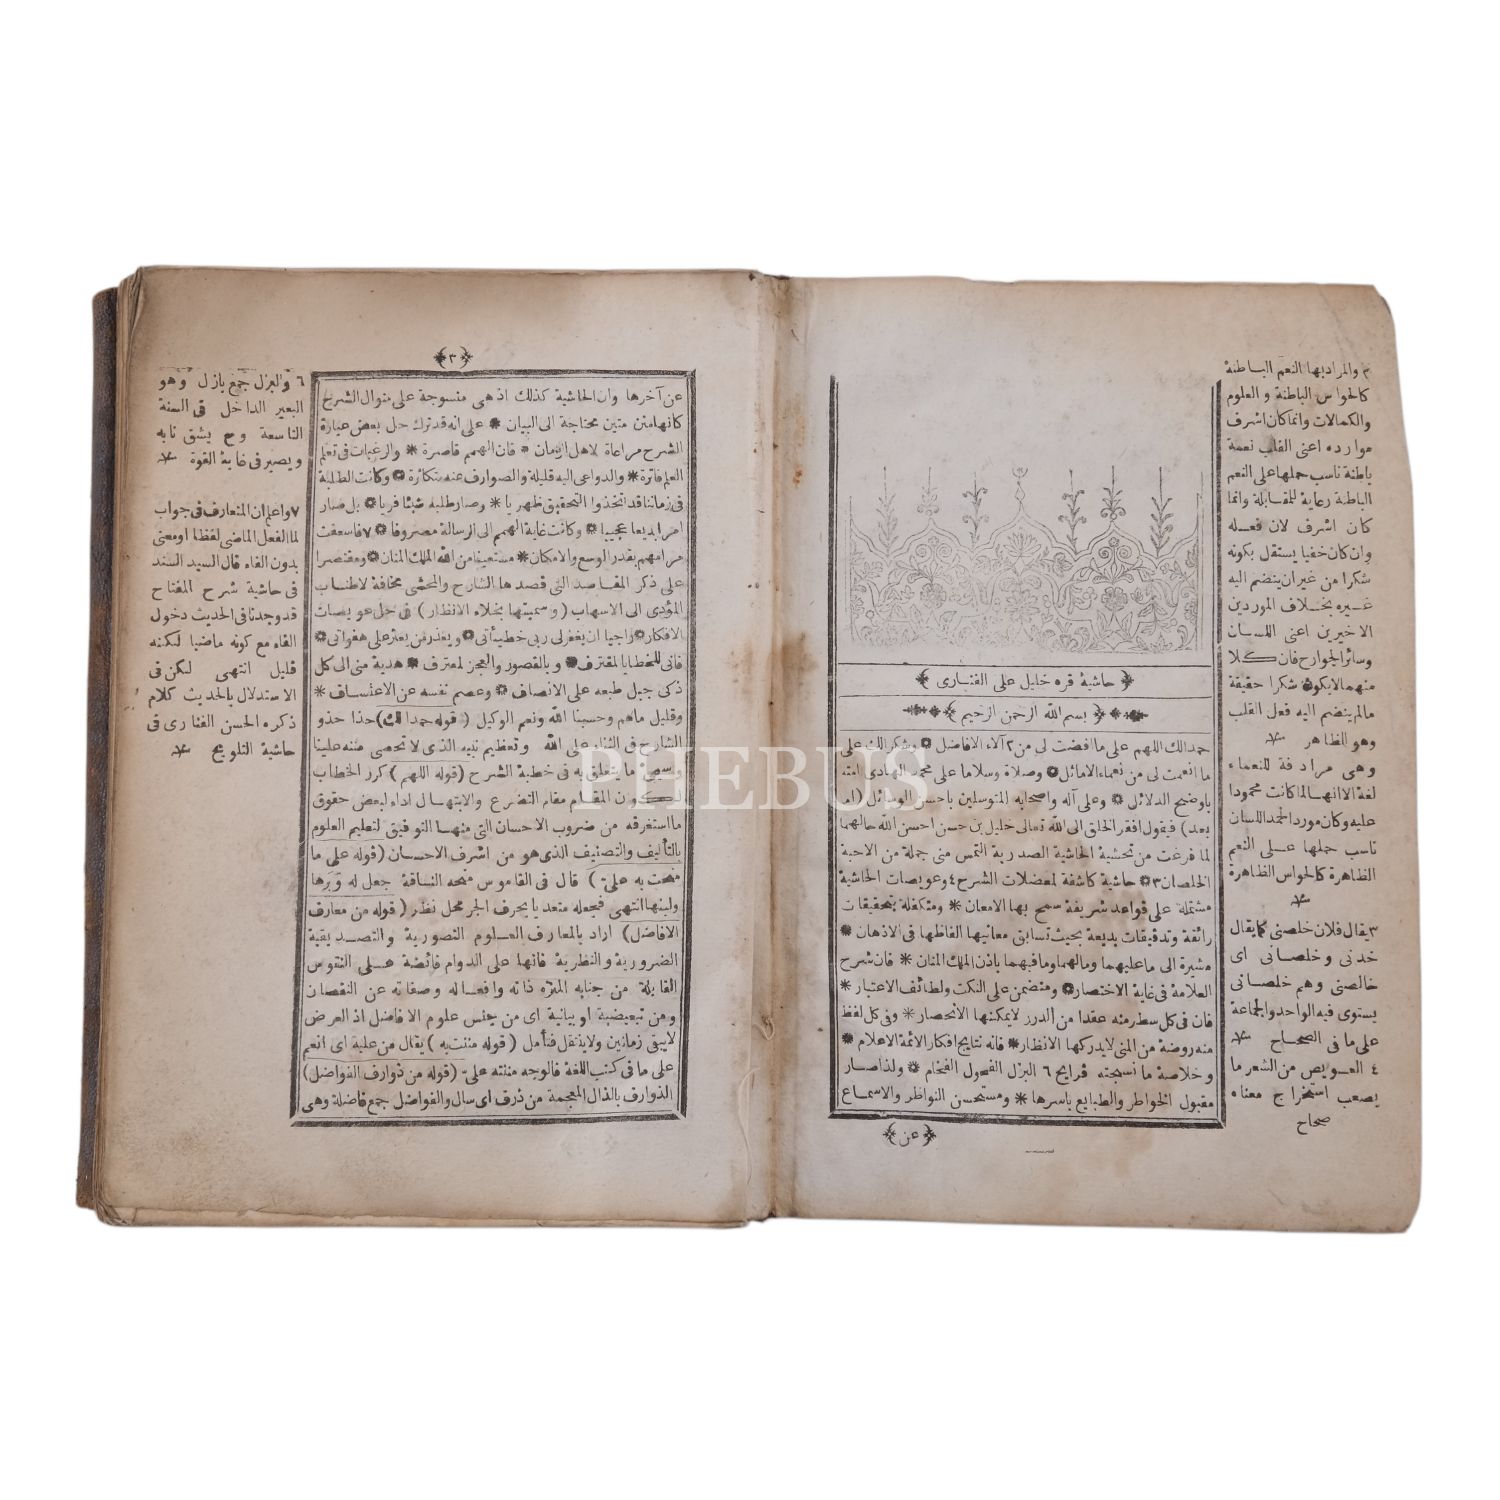 حاشية قره خليل على الفنارى
بسم الله الرحمن الرحيم
حمدا لك اللهم على ما افضت لى من ٢ آلاء الافاضل * وشكرا لك على
ما انعمت لى من نعماء الاماثل * وصلاة وسلاما على محمد الهادى امته
باوضح الدلائل * وعلى آله واصحابه المتوسلين باحسن الوسائل (اما
بعد) فيقول افقر الخلق الى الله تعالى خليل بن حسن احسن الله حالهما
لما فرغت من تحشية الحاشية الصدرية التمس منى جملة من الاحبة
الخلصان ٣ * حاشية كاشفة لمعضلات الشرح ٤ وعويصات الحاشية
مشتملة على قواعد شريفة سمح بها الامعان * ومتكفلة بتحقيقات
رائقة وتدقيقات بديعة بحيث تسابق معانيها الفاظها فى الاذهان *
مشيرة الى ما عليهما ومالهما وما فيهما باذن الملك المنان * فان شرح
العلامة فى غاية الاختصار * ومتضمن على النكت ولطائف الاعتبار *
فان فى كل سطر منه عقدا من الدرر لايمكنها الانحصار * وفى كل لفظ
منه روضة من المنى لايدركها الانظار * فانه نتايج افكار الائمة الاعلام *
وخلاصة ما نسجته قرايح ٦ البزل الفحول الفخام * ولذا صار
مقبول الخواطر والطبايع باسرها * ومستحسن النواظر والاسماع
عن
٢ والمراد بها النعم الباطنة
كالحواس الباطنة والعلوم
والكمالات وانما كان اشرف
موارده اعنى القلب نعمة
باطنة ناسب حملها على النعم
الباطنة رعاية للمقابلة وانما
كان اشرف لان فعله
وان كان خفيا يستقل بكونه
شكرا من غير ان ينضم اليه
غيره بخلاف الموردين
الاخيرين اعنى اللسان
وسائر الجوارح فان كلا
منهما لايكون شكرا حقيقة
مالم ينضم اليه فعل القلب
وهو الظاهر *
وهى مرادفة للنعماء
لغة الا انها لما كانت محمودا
عليه وكان مورد الحمد اللسان
ناسب حملها على النعم
الظاهرة كالحواس الظاهرة
*
٣ يقال فلان خلصنى كما يقال
خدنى وخلصانى اى
خالصنى وهم خلصانى
يستوى فيه الواحد والجماعة
على ما فى الصحاح *
٤ العويص من الشعر ما
يصعب استخراج معناه
صحاح
٣
عن آخرها وان الحاشية كذلك اذ هى منسوجة على منوال الشرح
كانها متن متين محتاجة الى البيان * على انه قد ترك حل بعض عبارة
الشرح مراعاة لاهل الزمان * فان الهمم قاصرة * والرغبات فى تعلم
العلم فاترة * والدواعى اليه قليلة والصوارف عنه متكاثرة * وكانت الطلبة
فى زماننا قد اتخذوا التحقيق ظهريا * وصار طلبه شيئا فريا * بل صار
امرا بديعا عجيبا * وكانت غاية الهمم الى الرسالة مصروفا * ٧ فاسعفت
مرامهم بقدر الوسع والامكان * مستعينا من الله الملك المنان * ومقتصرا
على ذكر المقاصد التى قصدها الشارح والمحشى مخافة لاطناب
المؤدى الى الاسهاب (وسميتها بجلاء الانظار) فى حل عويصات
الافكار * راجيا ان يغفر لى ربى خطيأتى * ويعذر من يعثر على هفواتى *
فانى للخطايا لمقترف * وبالقصور والعجز لمعترف * هدية منى الى كل
ذكى جبل طبعه على الانصاف * وعصم نفسه عن الاعتساف *
وقليل ماهم وحسبنا الله ونعم الوكيل (قوله حمدا لك) حذا حذو
الشارح فى الثناء على الله وتعظيم نبيه الذى لا تحصى مننه علينا
ما يتعلق به فى خطبة الشرح (قوله اللهم) كرر الخطاب
لكون المقام مقام التضرع والابتهال اداء لبعض حقوق
ما استغرقه من ضروب الاحسان التى منها التوفيق لتعليم العلوم
بالتأليف والتصنيف الذى هو من اشرف الاحسان (قوله على ما
منحت به على) قال فى القاموس منحه الناقة جعل له وبرها
ولبنها انتهى فجعله متعديا بحرف الجر محل نظر (قوله من معارف
الافاضل) اراد بالمعارف العلوم التصورية والتصديقية
الضرورية والنظرية فانها على الدوام فائضة على النفوس
القابلة من جنابه المنزه ذاته وافعاله وصفاته عن النقصان
ومن تبعيضية او بيانية اى من جنس علوم الافاضل اذ العرض
لايبقى زمانين ولاينتقل فتأمل (قوله مننت به) يقال من عليه اى انعم
على ما فى كتب اللغة فالوجه مننته على (قوله من ذوارف الفواضل)
الذوارف بالذال المعجمة من ذرف اى سال والفواضل جمع فاضلة وهى
٦ والبزل جمع بازل وهو
البعير الداخل فى السنة
التاسعة وح يشق نابه
ويصير فى غاية القوة *
٧ واعلم ان المتعارف فى جواب
لما الفعل الماضى لفظا او معنى
بدون الفاء قال السيد السند
فى حاشية شرح المفتاح
قد وجدنا فى الحديث دخول
الفاء مع كونه ماضيا لكنه
قليل انتهى لكن فى
الاستدلال بالحديث كلام
ذكره الحسن الفنارى فى
حاشية التلويح *
PHEBUS